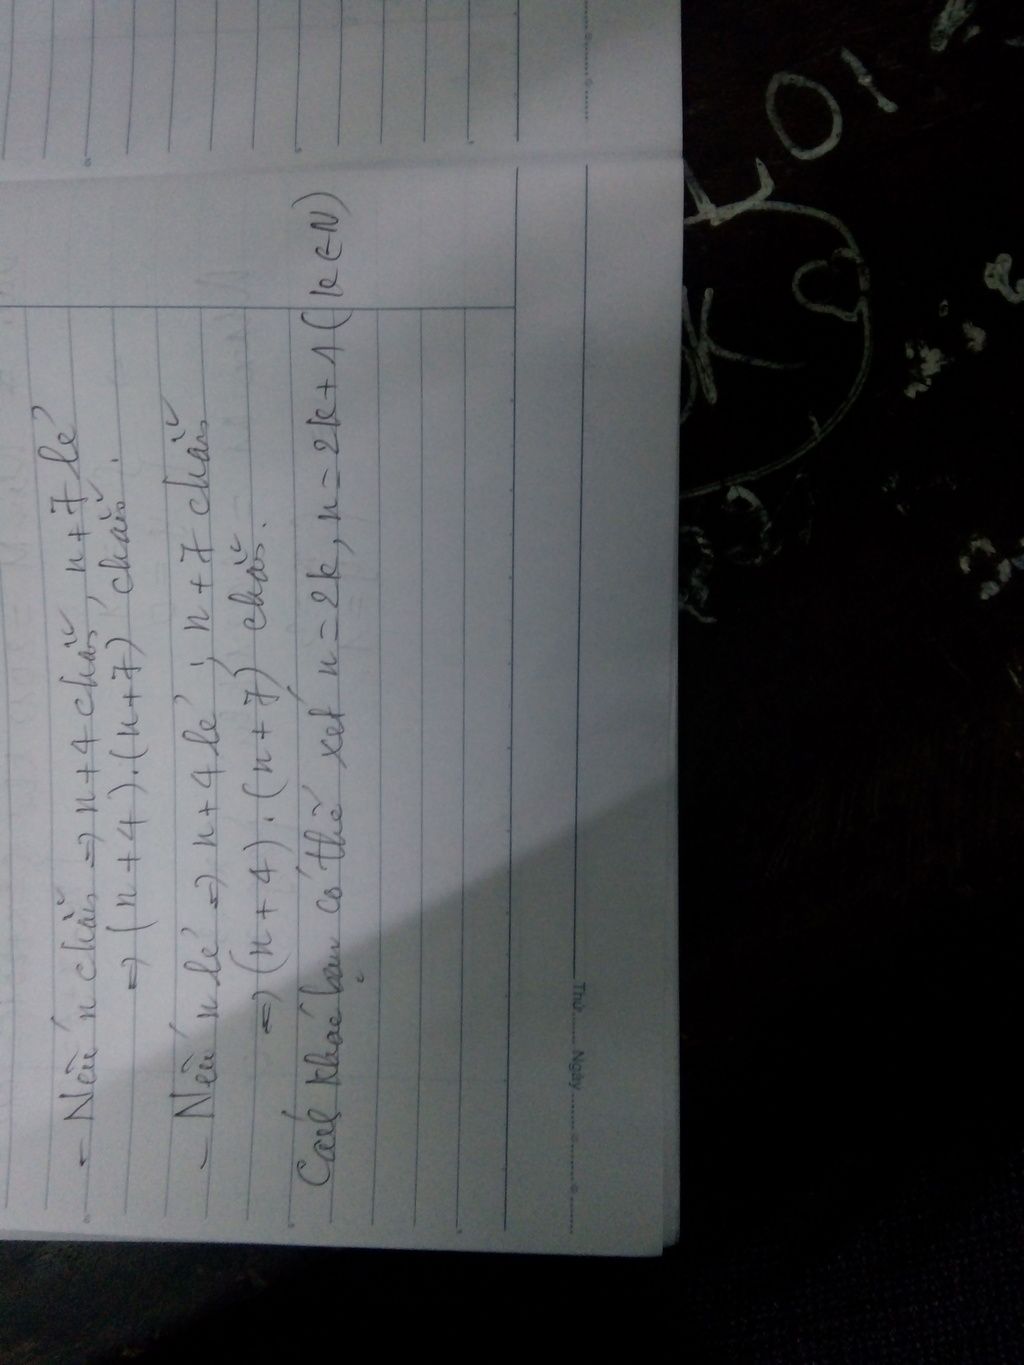 - Nếu n chẵn => n + 4 chẵn, n + 7 lẻ
=> (n + 4).(n + 7) chẵn.
- Nếu n lẻ => n + 4 lẻ, n + 7 chẵn
=> (n + 4).(n + 7) chẵn.
Cách khác bạn có thể xét n = 2k, n = 2k + 1 (k ∈ N)
Thứ ........ Ngày